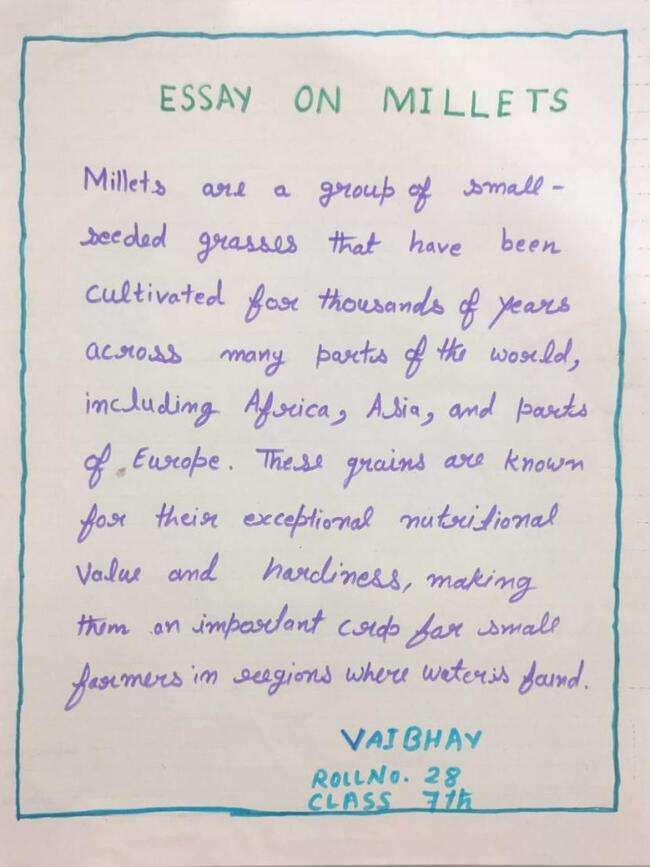 ESSAY ON MILLETS
Millets are a group of small-
seeded grasses that have been
cultivated for thousands of years
across many parts of the world,
including Africa, Asia, and parts
of Europe. These grains are known
for their exceptional nutritional
value and hardiness, making
them an important crop for small
farmers in regions where water is found.
VAIBHAV
ROLL NO. 28
CLASS 7th